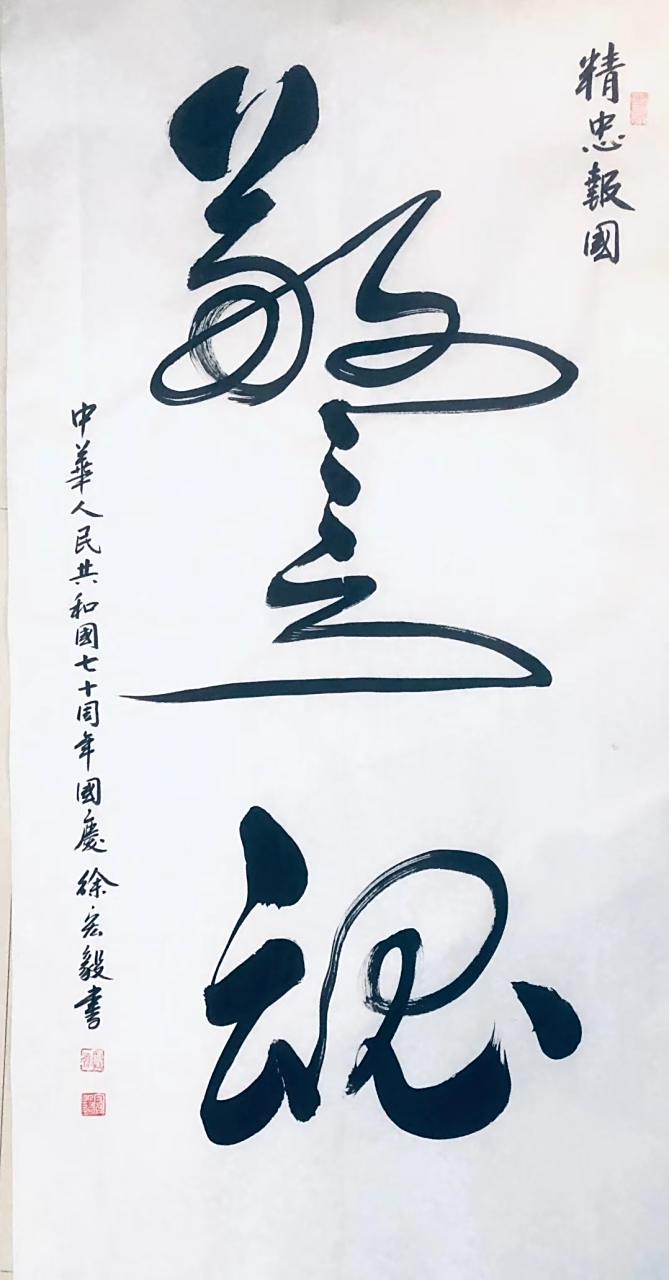 精忠報國
警魂
中華人民共和國七十周年國慶 徐宏毅書